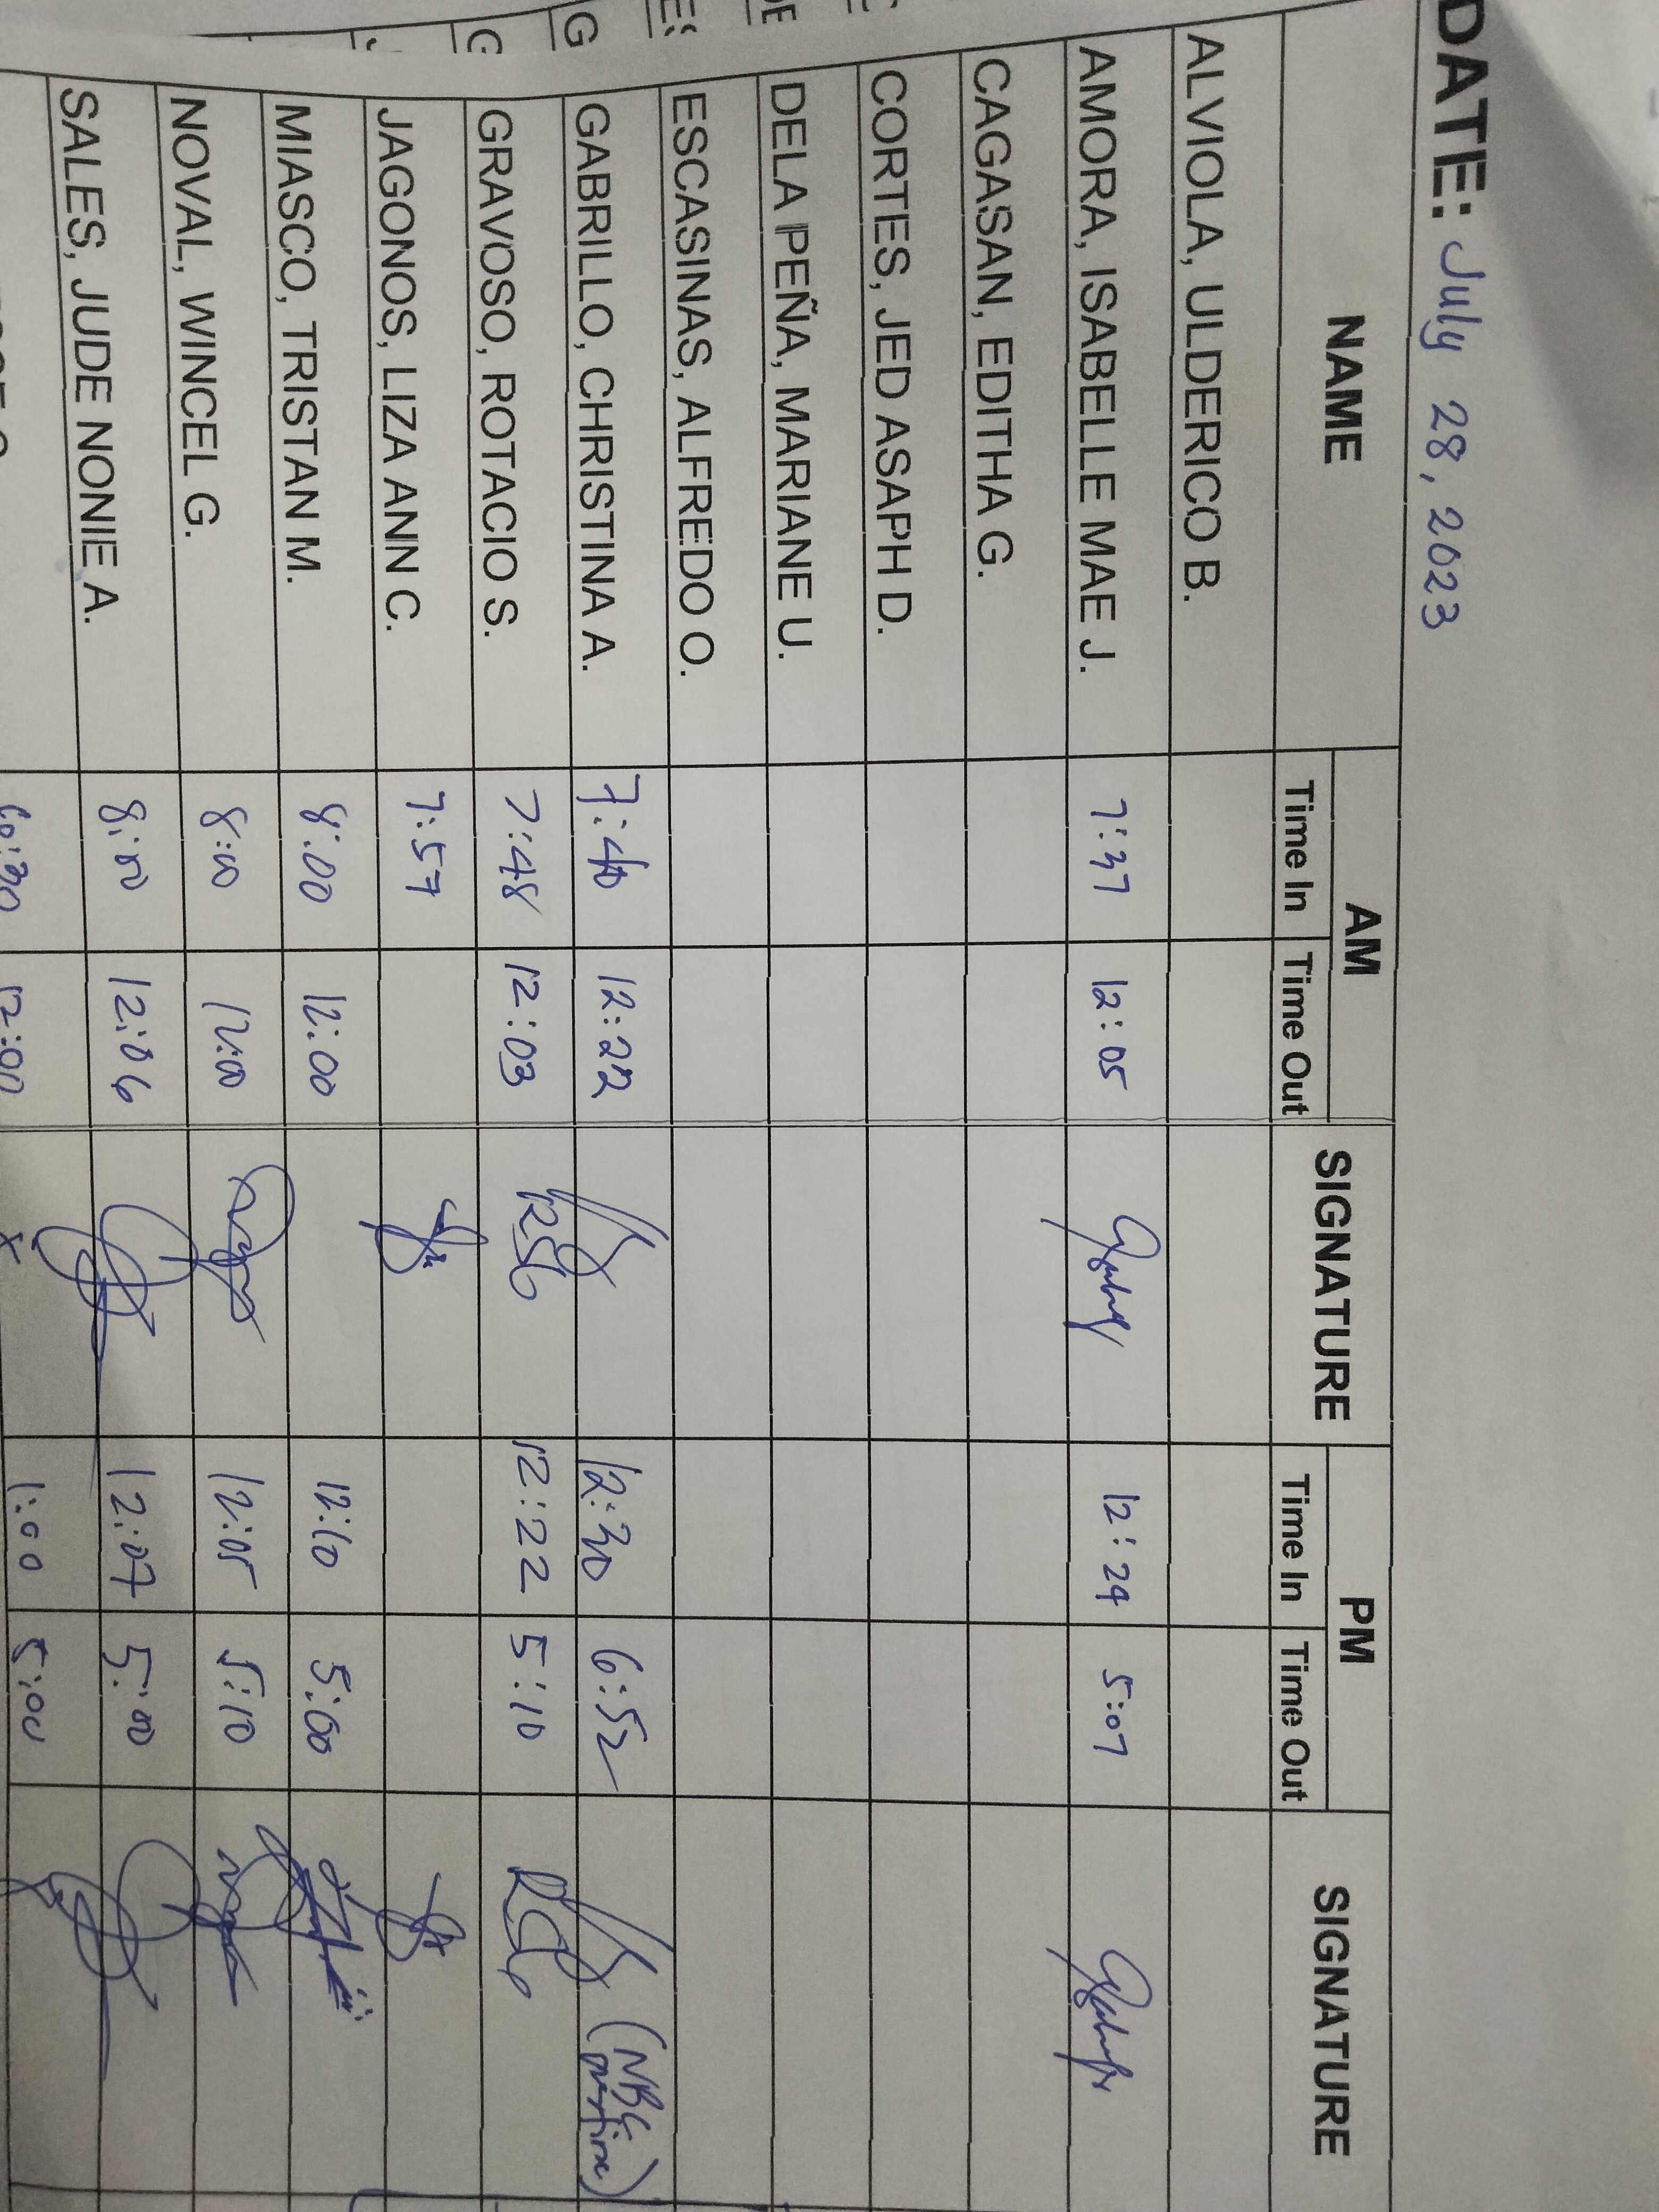 DATE: July 28, 2023
NAME AM SIGNATURE PM SIGNATURE
Time In Time Out Time In Time Out
ALVIOLA, ULDERICO B.
AMORA, ISABELLE MAE J. 7:37 12:05 12:29 5:07
CAGASAN, EDITHA G.
CORTES, JED ASAPH D.
DELA PEÑA, MARIANE U.
ESCASINAS, ALFREDO O.
GABRILLO, CHRISTINA A. 7:40 12:22 12:30 6:52 (NBC
GRAVOSO, ROTACIO S. 7:48 12:03 RSG 12:22 5:10 RSG
JAGONOS, LIZA ANN C. 7:57
MIASCO, TRISTAN M. 8:00 12:00 12:10 5:00
NOVAL, WINCEL G. 8:00 12:00 12:05 5:10
SALES, JUDE NONIE A. 8:00 12:06 12:07 5:00
6:30 12:00 1:00 5:00